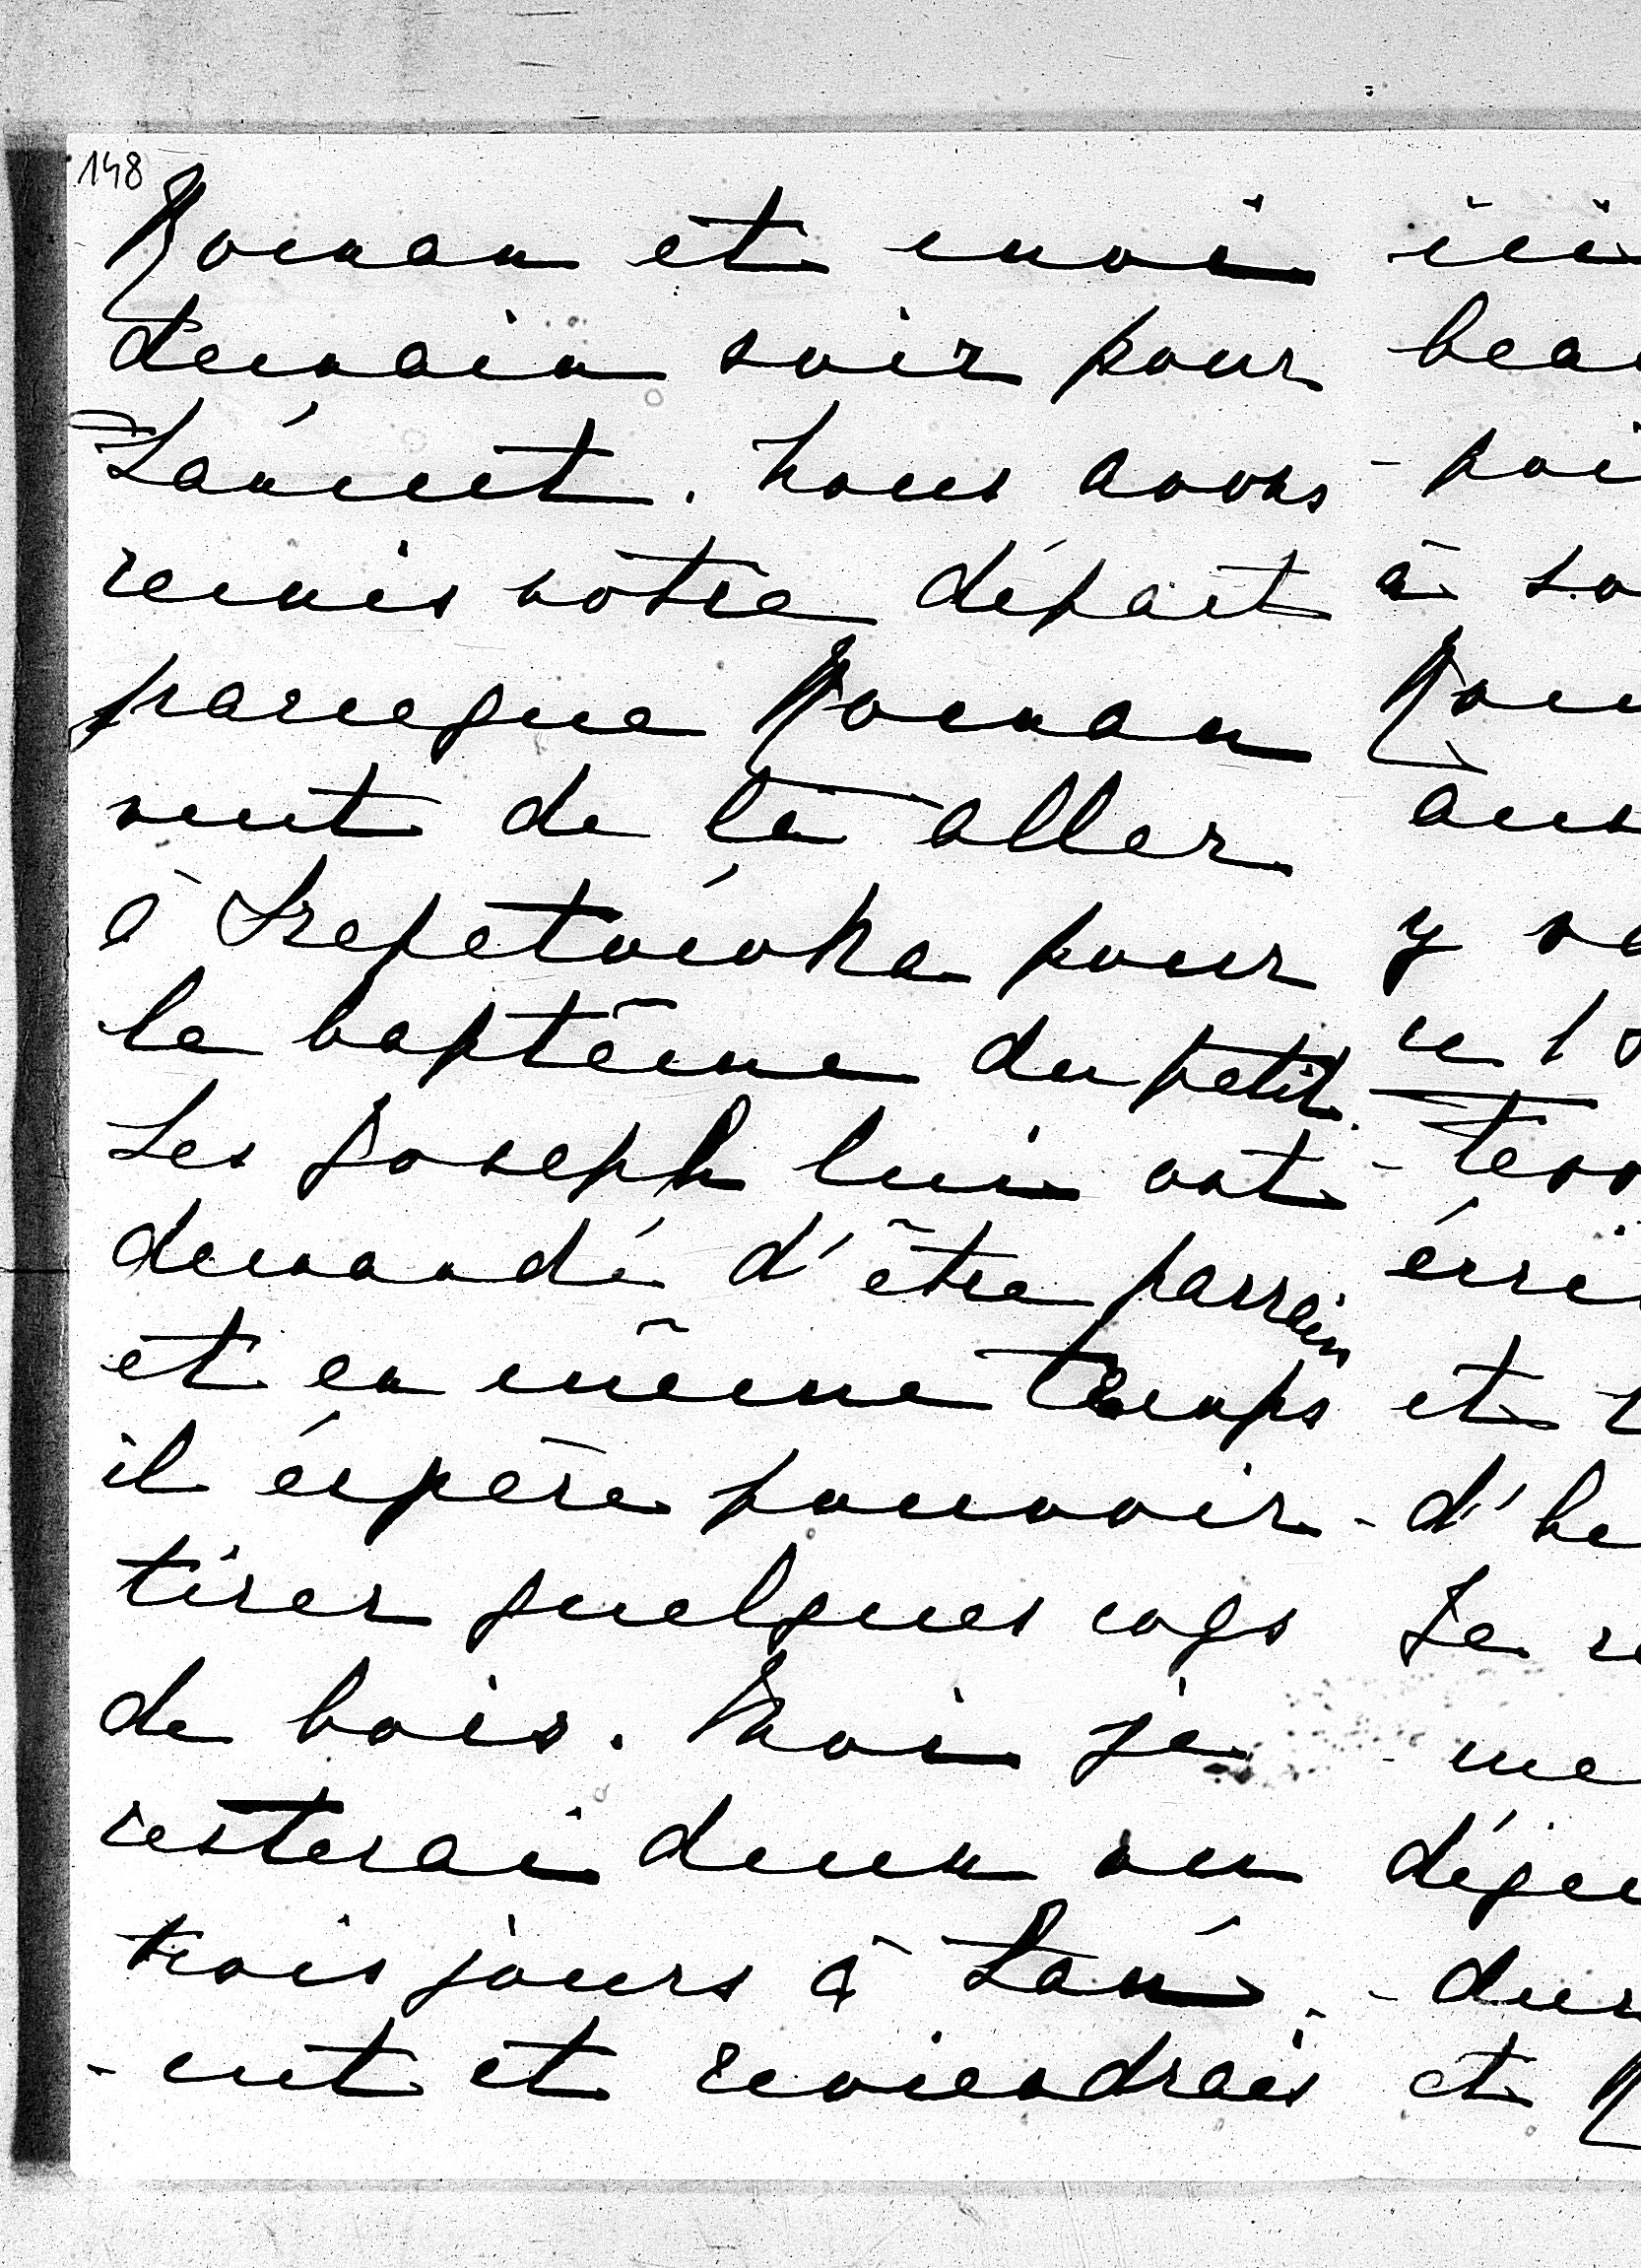 148
Roman et moi
demain soir pour
Łańcut. Nous avons
remis notre départ
parceque Roman
veut de là aller
à Szepetówka pour
le baptême du petit.
Les Joseph lui ont
demandé d'être parrain
et en même temps
il éspère pouvoir
tirer quelques coqs
de bois. Moi je
resterai deux ou
trois jours à Łań-
-cut et reviendrais
ici
à
y
et
d'
Je
et